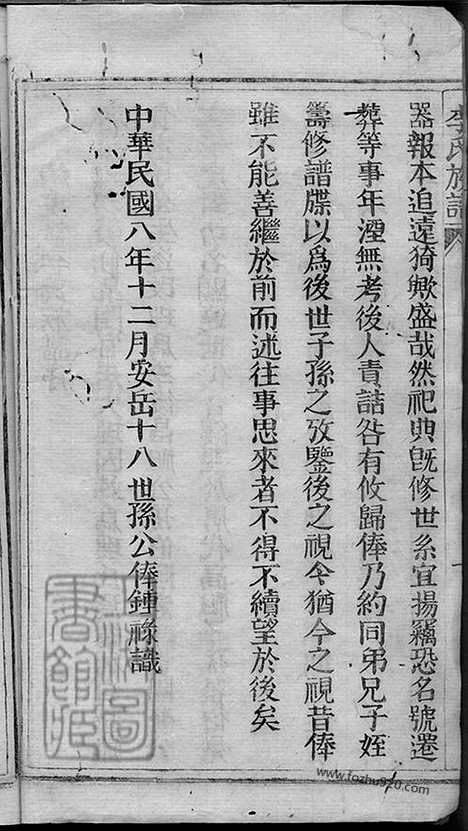 李氏族譜
器報本追遠猗歟盛哉然祀典旣修世系宜揚竊恐名號遷
葬等事年湮無考後人責詰咎有攸歸俸乃約同弟兄子姪
籌修譜牒以爲後世子孫之攷鑒後之視今猶今之視昔俸
雖不能善繼於前而述往事思來者不得不續望於後矣
中華民國八年十二月安岳十八世孫公俸鍾祿識
www.fozhu920.com